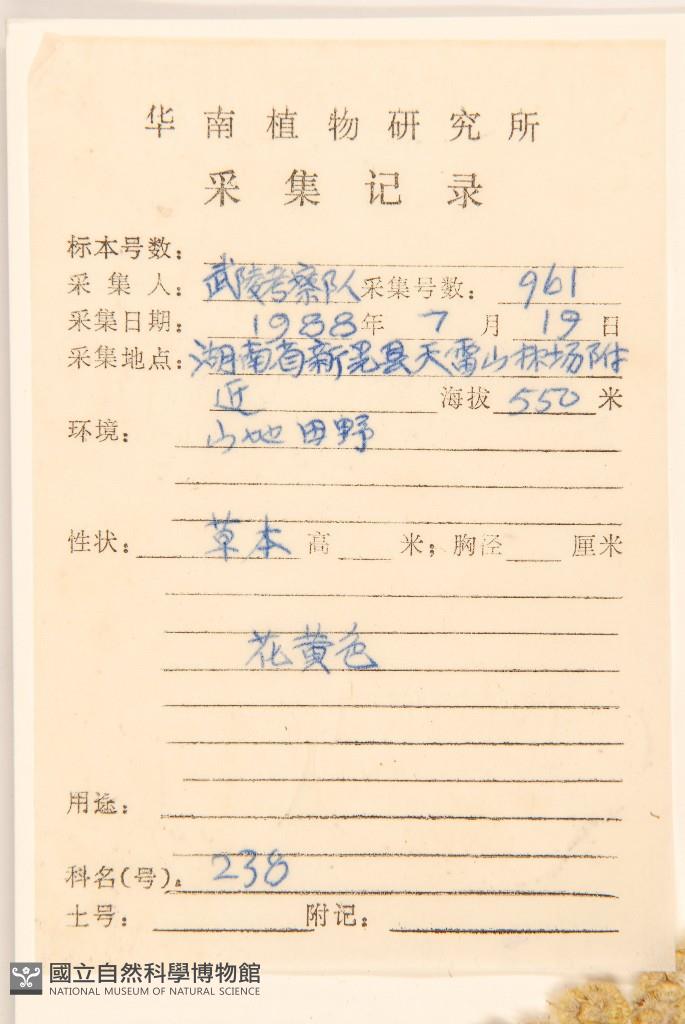 华南植物研究所
采集记录
标本号数：
采集人：武陵考察队 采集号数：961
采集日期：1988年 7 月 19 日
采集地点：湖南省新晃县天雷山林场附
近 海拔 550 米
环境：山地田野
性状： 草本 高 米；胸径 厘米
花黄色
用途：
科名(号)：238
土号： 附记：
國立自然科學博物館
NATIONAL MUSEUM OF NATURAL SCIENCE